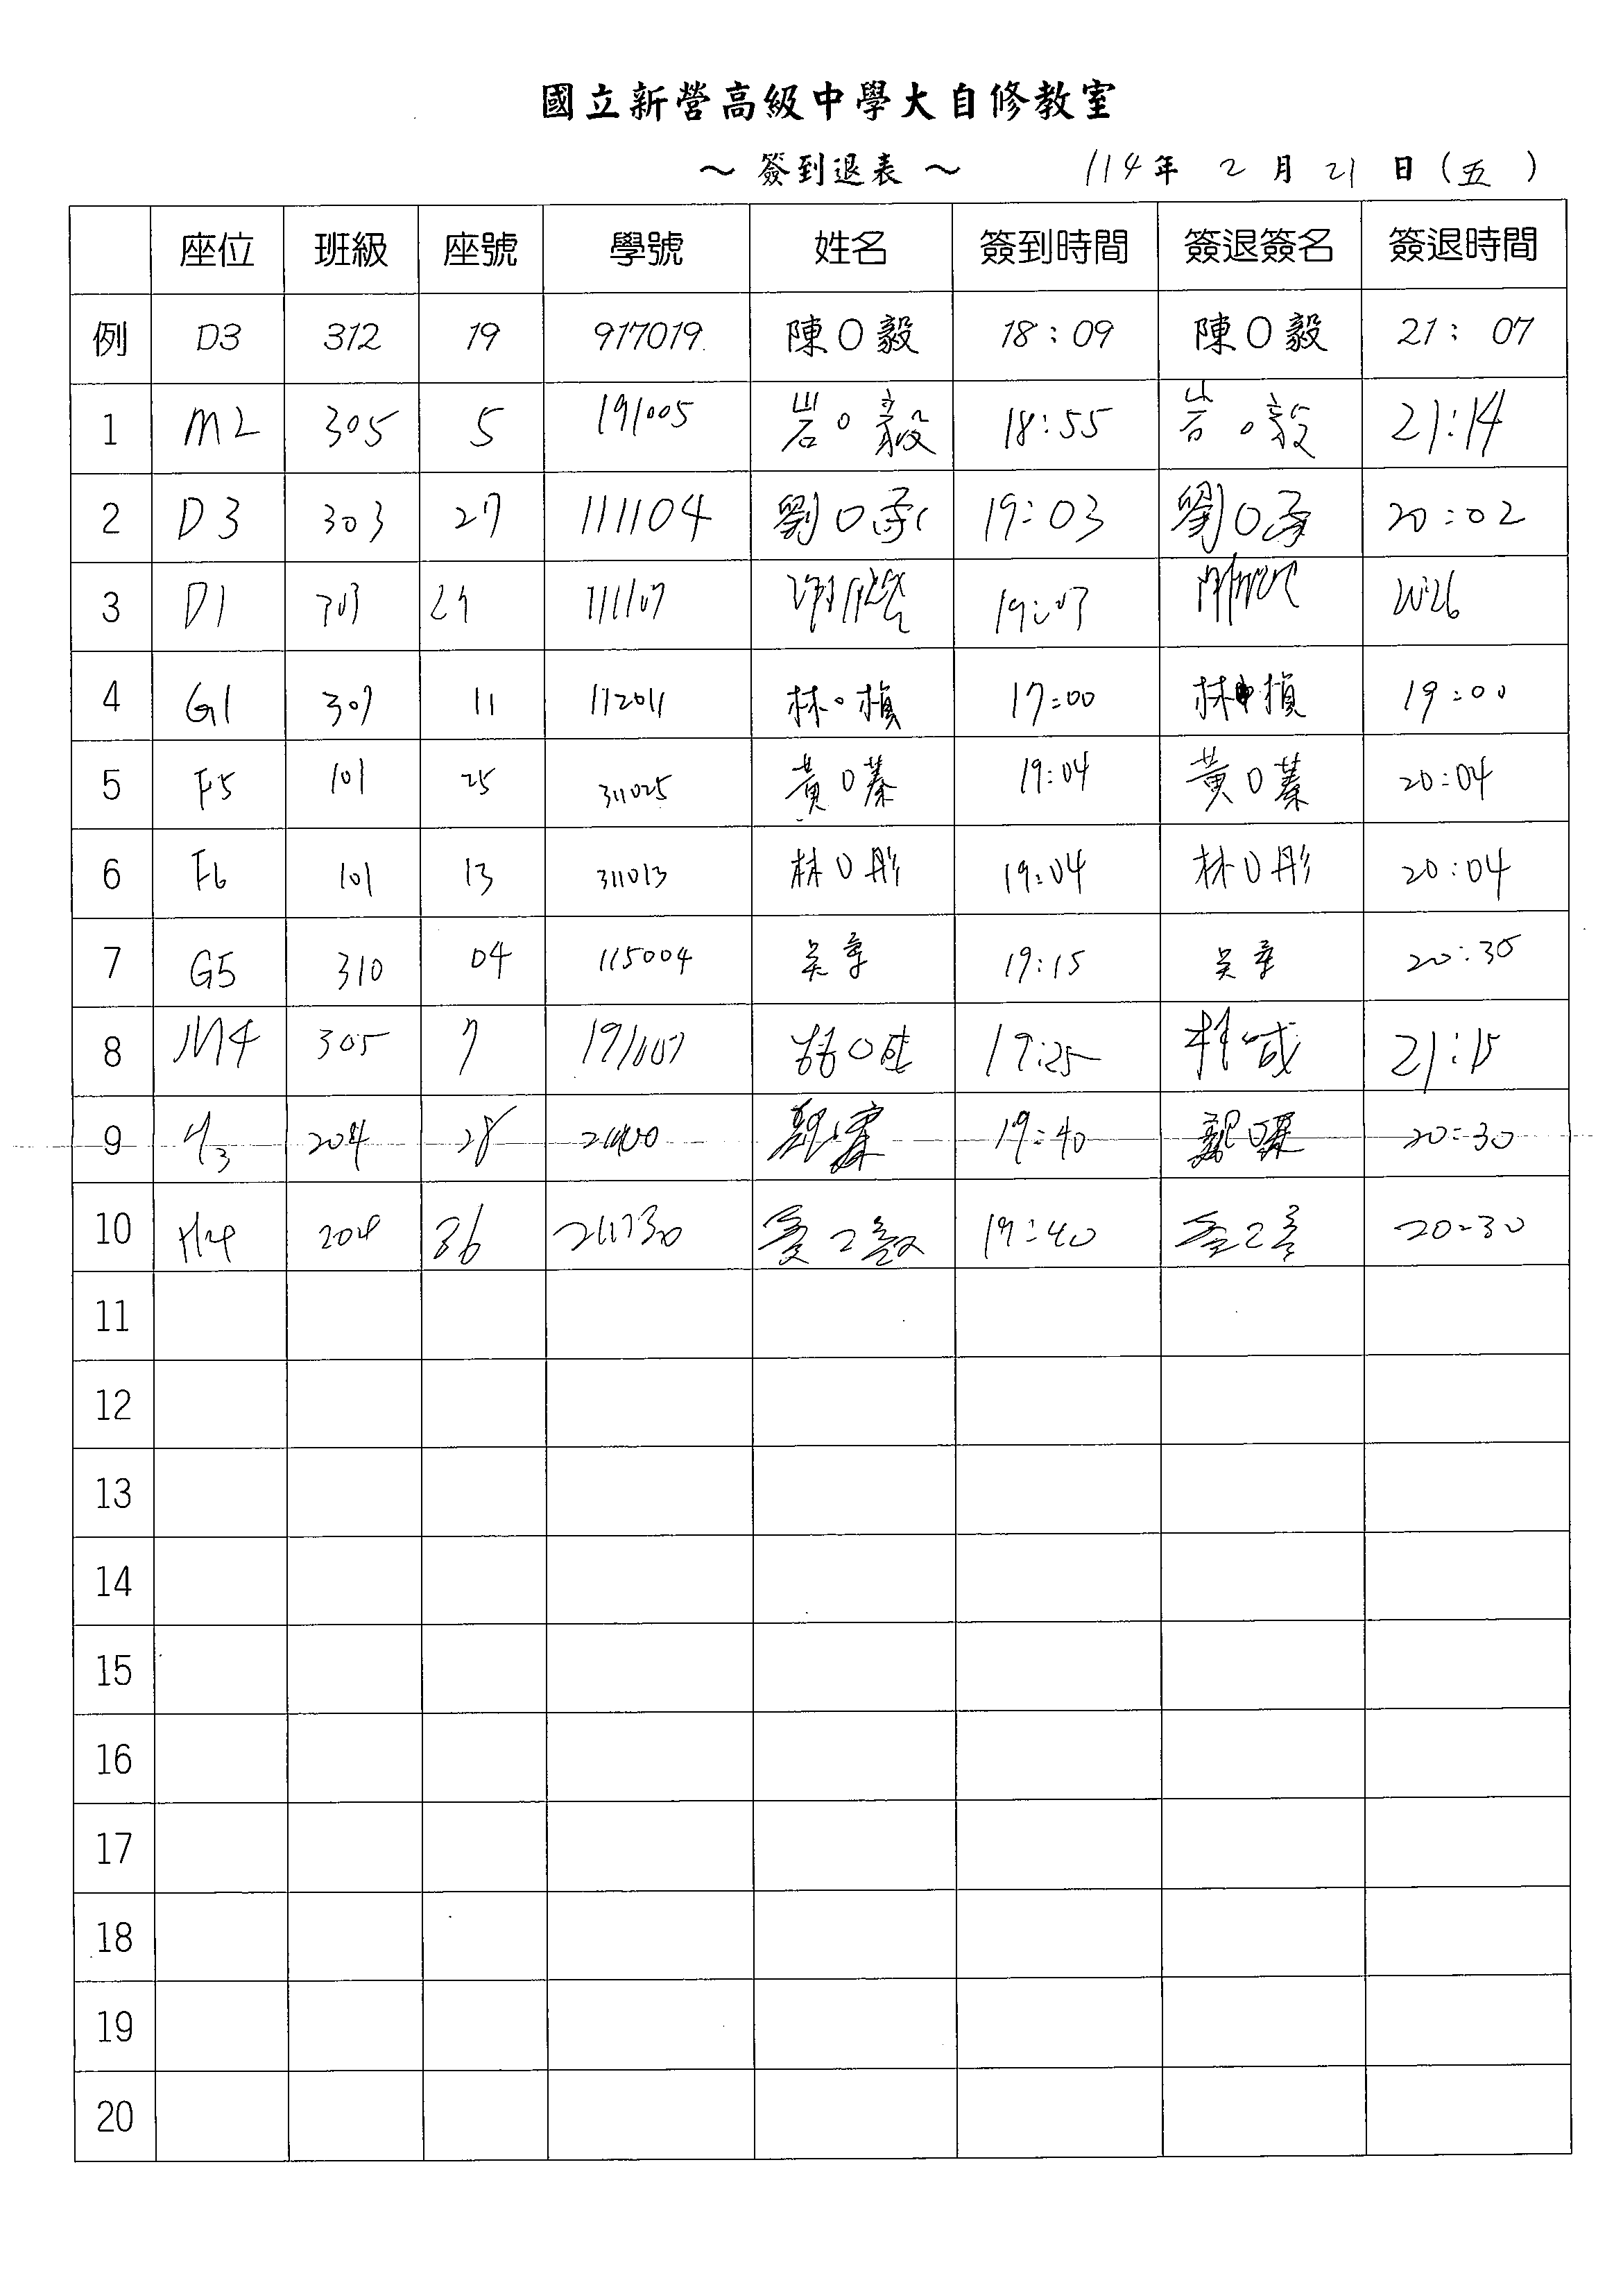 國立新營高級中學大自修教室
～ 簽到退表 ～ 114年 2 月 21 日 (五)
座位 班級 座號 學號 姓名 簽到時間 簽退簽名 簽退時間
例 D3 312 19 917019 陳O毅 18:09 陳O毅 21:07
1 M2 305 5 191005 岩O毅 18:55 岩O毅 21:14
2 D3 303 27 111104 劉O承 19:03 劉O承 20:02
3 D1 303 29 111107 19:03
4 G1 307 11 112011 林O楨 17:00 林 楨 19:00
5 F5 101 25 311025 黃O蓁 19:04 黃O蓁 20:04
6 F6 101 13 311013 林O彤 19:04 林O彤 20:04
7 G5 310 04 115004 吳 19:15 吳 20:30
8 M4 305 7 191007 19:25 21:15
9 H3 204 28 19:40 20:30
10 H4 204 36 19:40 20:30
11
12
13
14
15
16
17
18
19
20